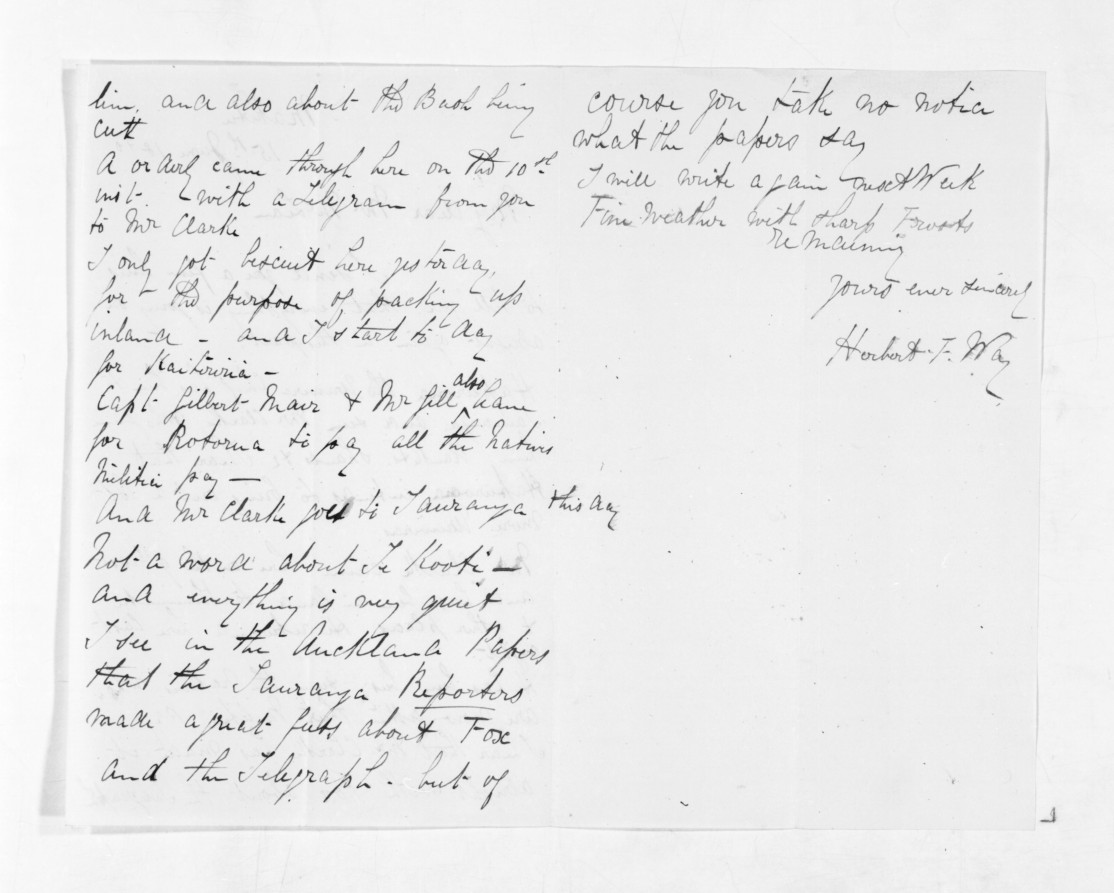 him. and also about the Bush being
cutt
A orderly came through here on the 10th
inst. with a Telegram from you
to Mr Clarke
I only got biscuit here yesterday,
for the purpose of packing up
inland - and I start to day
for Kaiteriria -
Capt Gilbert Mair & Mr Gill also leave
for Rotorua to pay all the Natives
Militia pay -
And Mr Clarke goes to Tauranga this day
Not a word about Te Kooti -
and everything is very quiet
I see in the Auckland Papers
that the Tauranga Reporters
made a great fuss about Fox
and the Telegraph - but of
course you take no notice
what the papers say
I will write again next Week
Fine Weather with sharp Frosts
remaining
yours ever sincerely
Herbert. F. Way